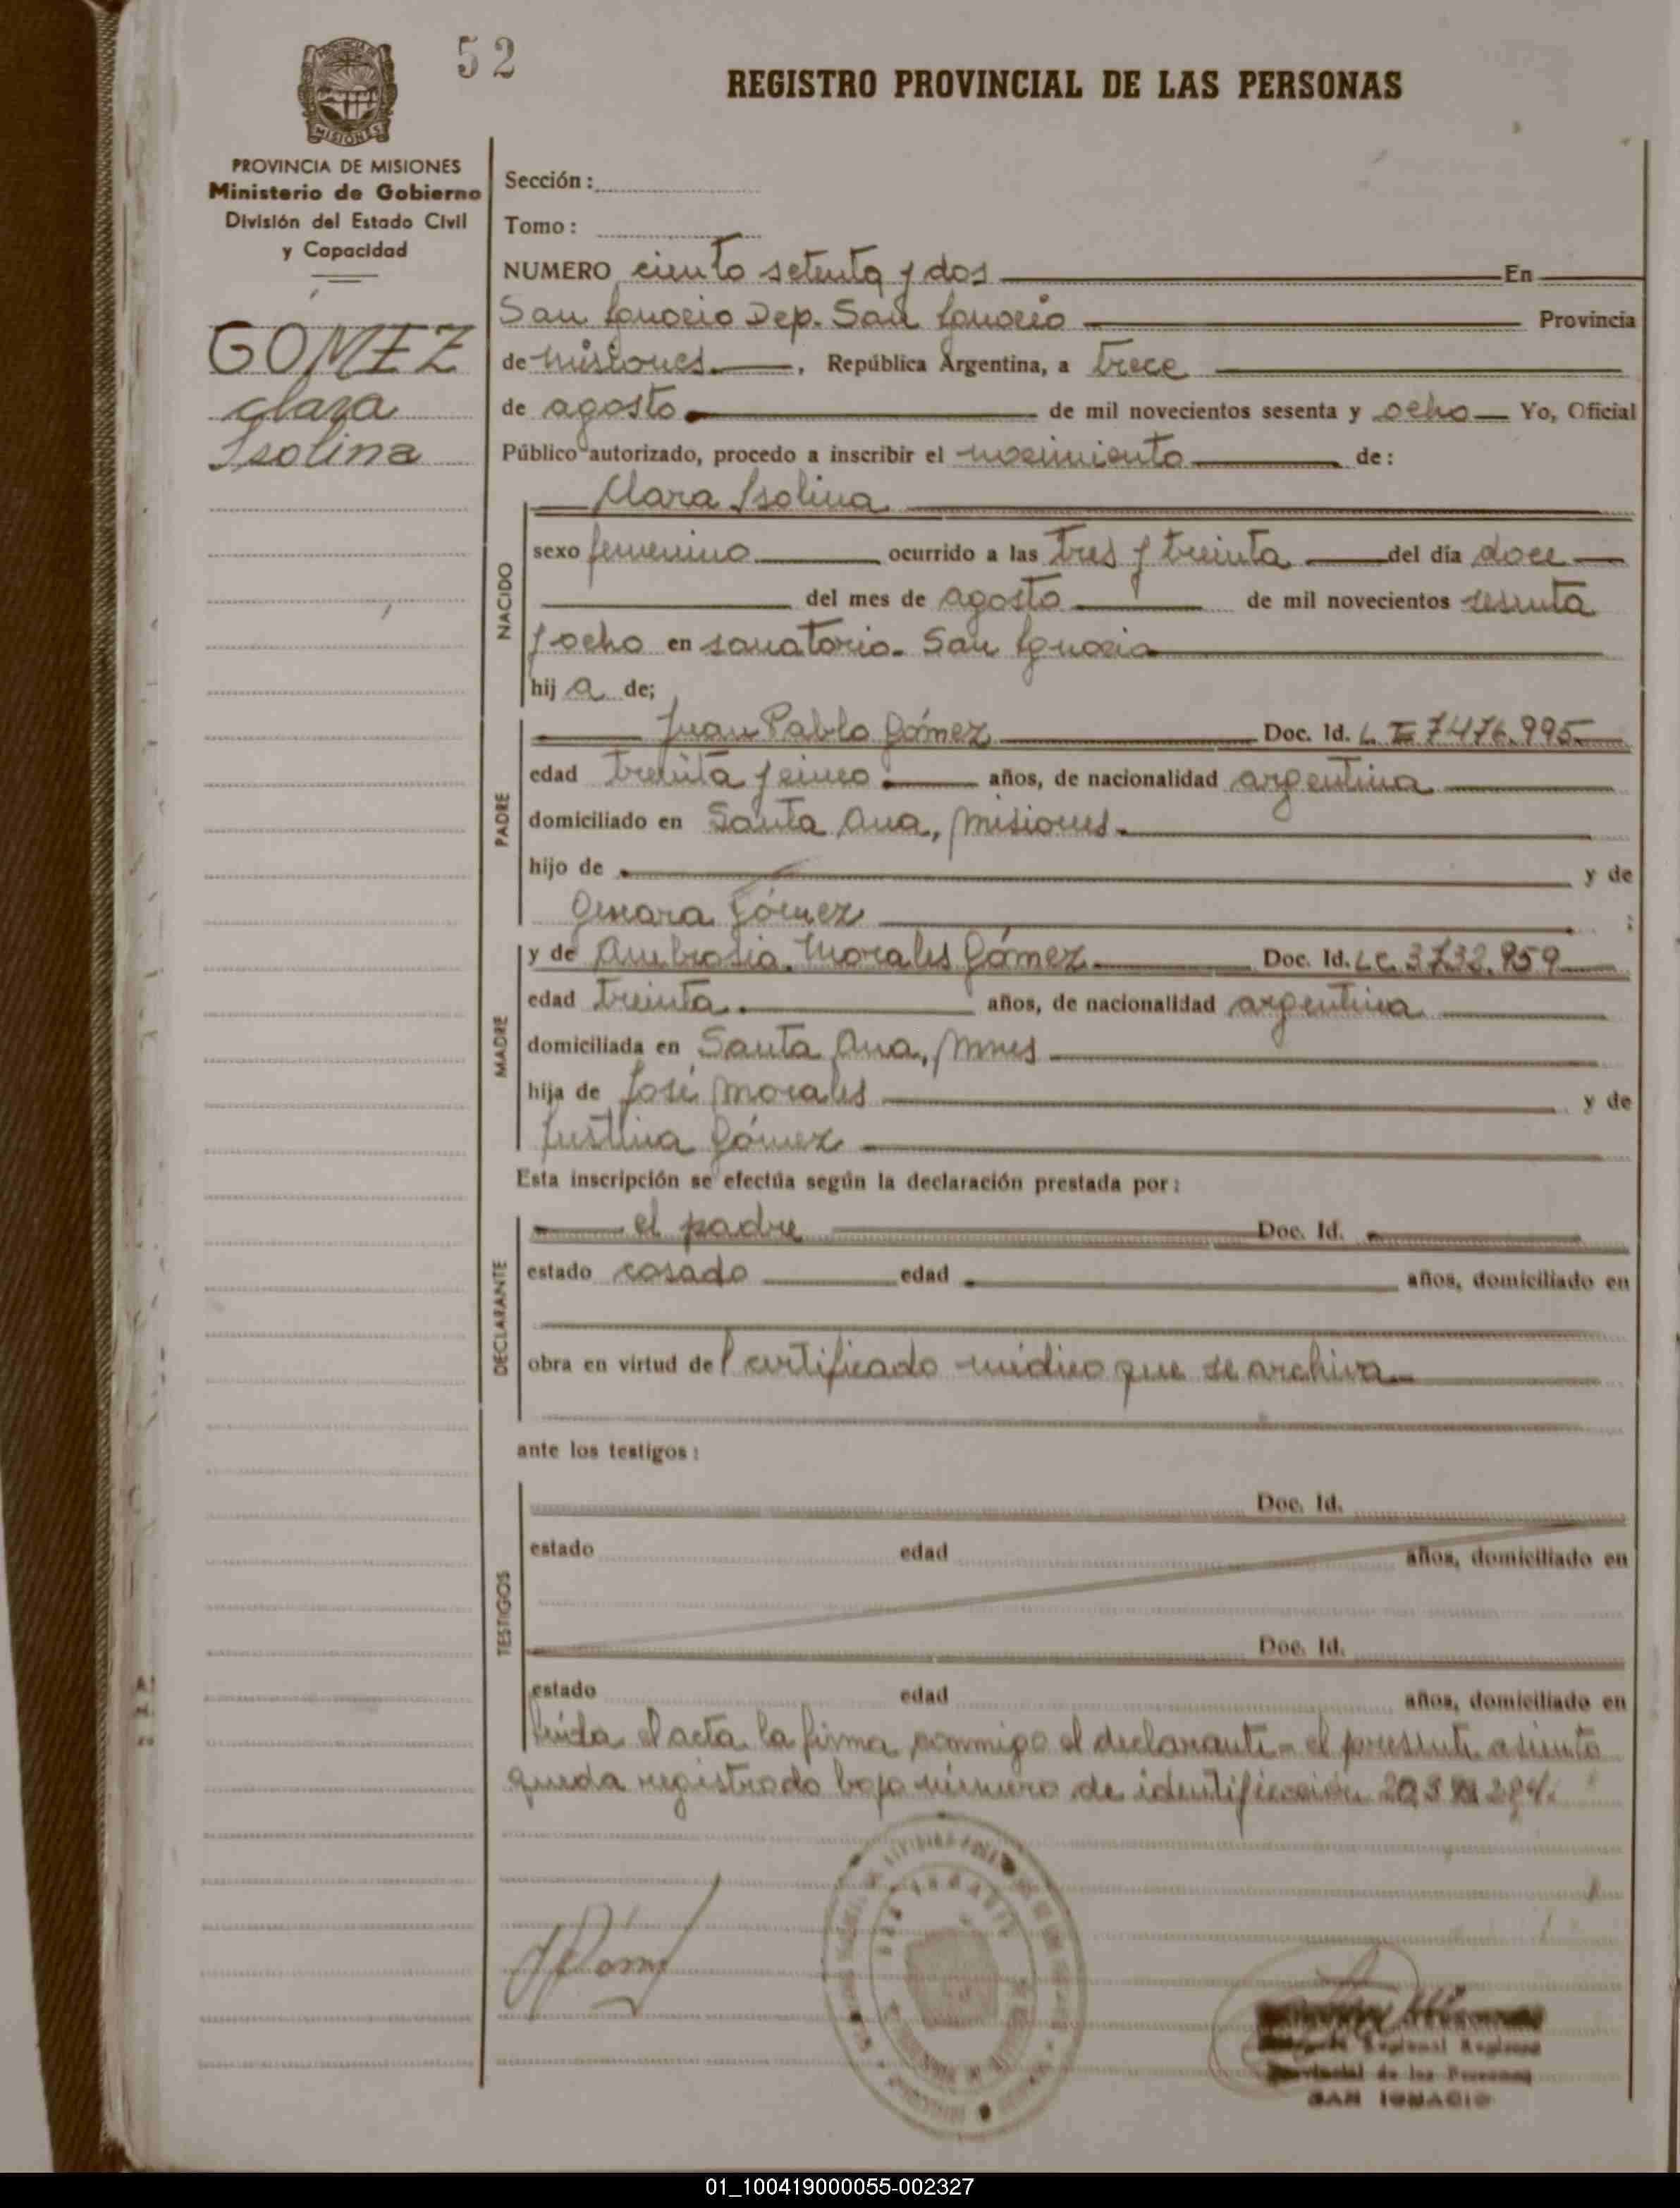 52
REGISTRO PROVINCIAL DE LAS PERSONAS
MISIONES
PROVINCIA DE MISIONES
Ministerio de Gobierno
División del Estado Civil
y Capacidad
GOMEZ
Clara
Isolina
Sección:
Tomo:
NUMERO ciento setenta y dos En
San Ignacio Dep. San Ignacio Provincia
de Misiones. , República Argentina, a trece
de agosto de mil novecientos sesenta y ocho Yo, Oficial
Público autorizado, procedo a inscribir el nacimiento de:
Clara Isolina
NACIDO
sexo femenino ocurrido a las tres y treinta del día doce
del mes de agosto de mil novecientos sesenta
y ocho en sanatorio. San Ignacio
hij a de;
PADRE
Juan Pablo Gómez Doc. Id. L. E 7476.995
edad treinta y cinco años, de nacionalidad argentina
domiciliado en Santa Ana, Misiones.
hijo de y de
Genara Gómez ;
MADRE
y de Ambrosia Morales Gómez Doc. Id. LC. 3732.959
edad treinta. años, de nacionalidad argentina
domiciliada en Santa Ana, Mnes
hija de José Morales y de
Justina Gómez
Esta inscripción se efectúa según la declaración prestada por:
DECLARANTE
el padre Doc. Id.
estado casado edad años, domiciliado en
obra en virtud del certificado médico que se archiva
ante los testigos:
TESTIGOS
Doc. Id.
estado edad años, domiciliado en
Doc. Id.
estado edad años, domiciliado en
Leída el acta la firma conmigo el declarante - el presente asiento
queda registrado bajo número de identificación
Regional
Provincial de las Personas
SAN IGNACIO
01_100419000055-002327